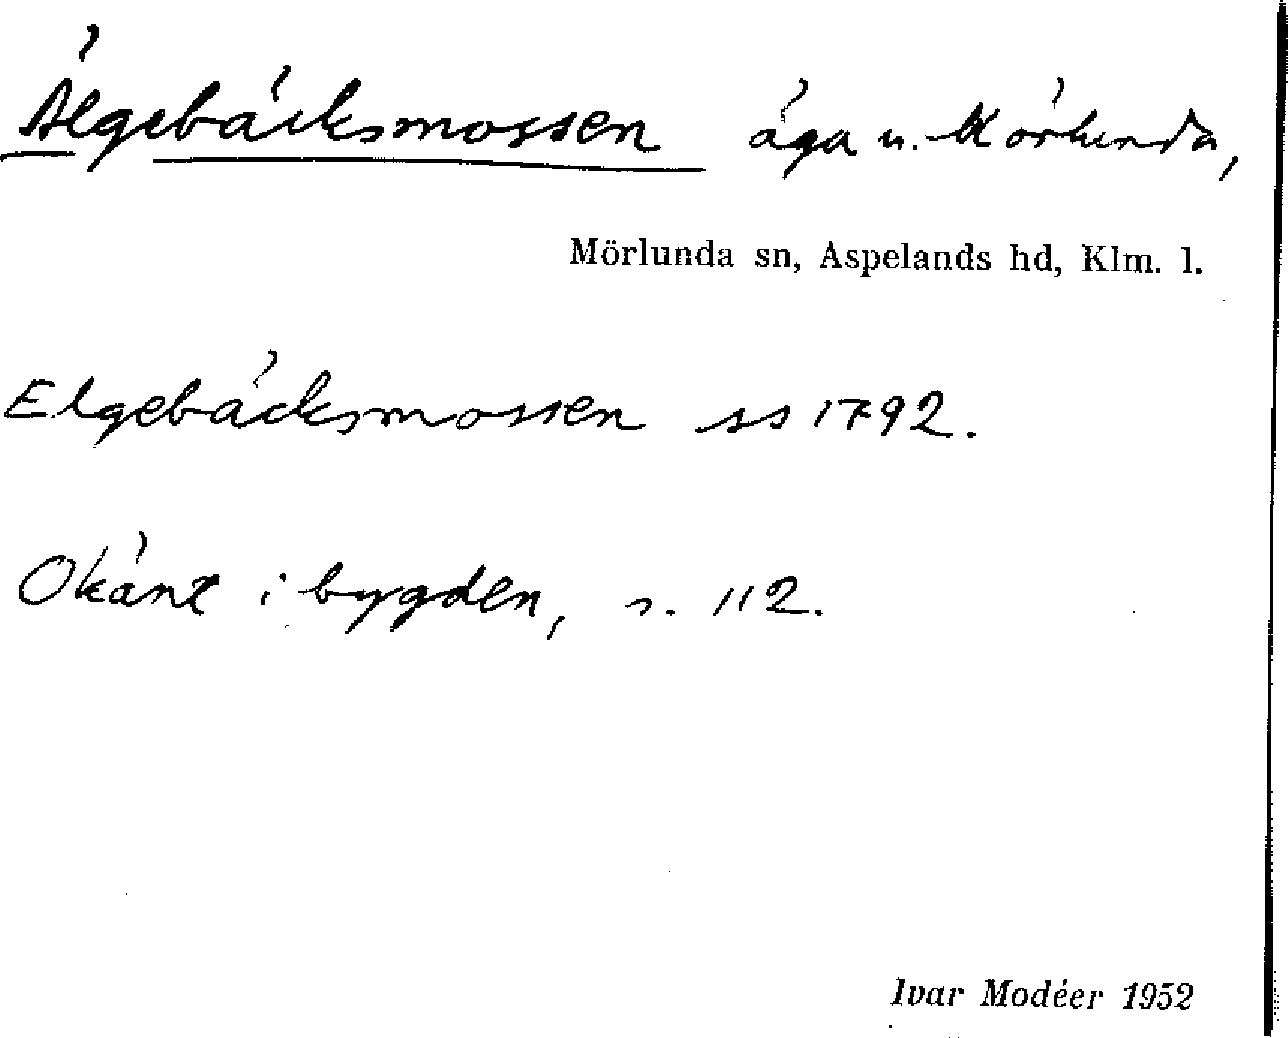 Älgebäcksmossen äga u. Mörlunda,
Mörlunda sn, Aspelands hd, Klm. l.
Elgebäcksmossen ss 1792.
Okänt i bygden, s. 112.
Ivar Modéer 1952